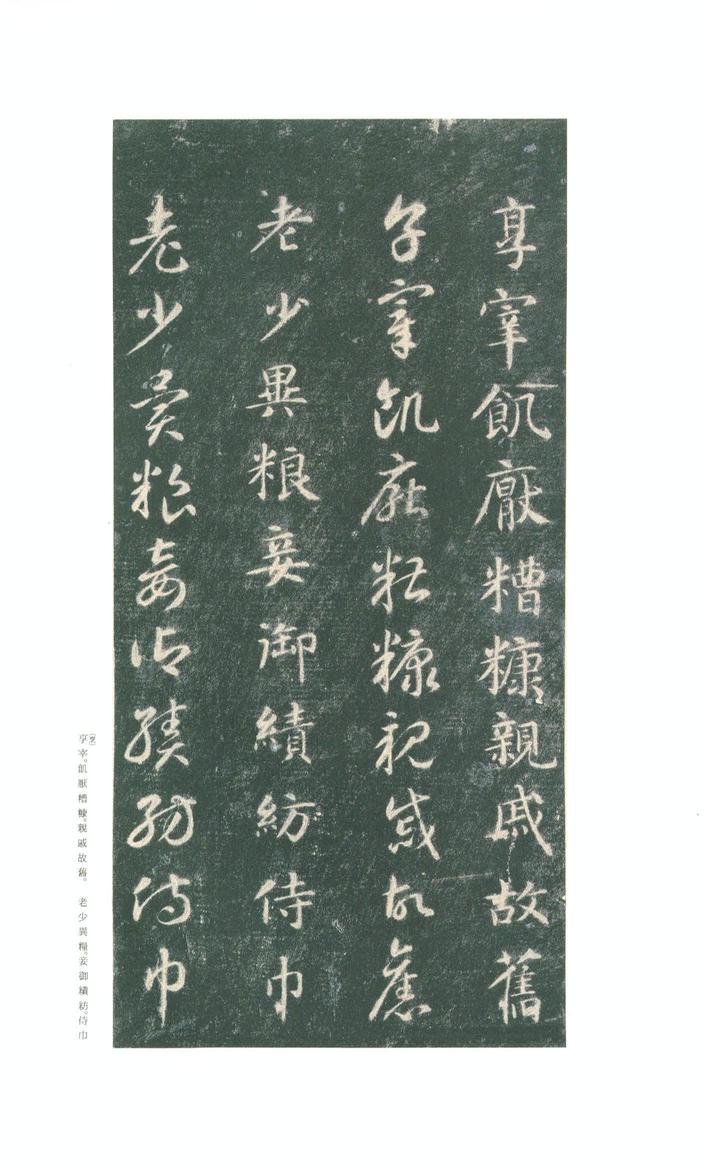 享宰飢厭糟糠親戚故舊
享宰飢厭糟糠親戚故舊
老少異粮妾御績紡侍巾
老少異粮妾御績紡侍巾
享(烹)宰。飢厭糟糠。親戚故舊。 老少異糧。妾御績紡。侍巾